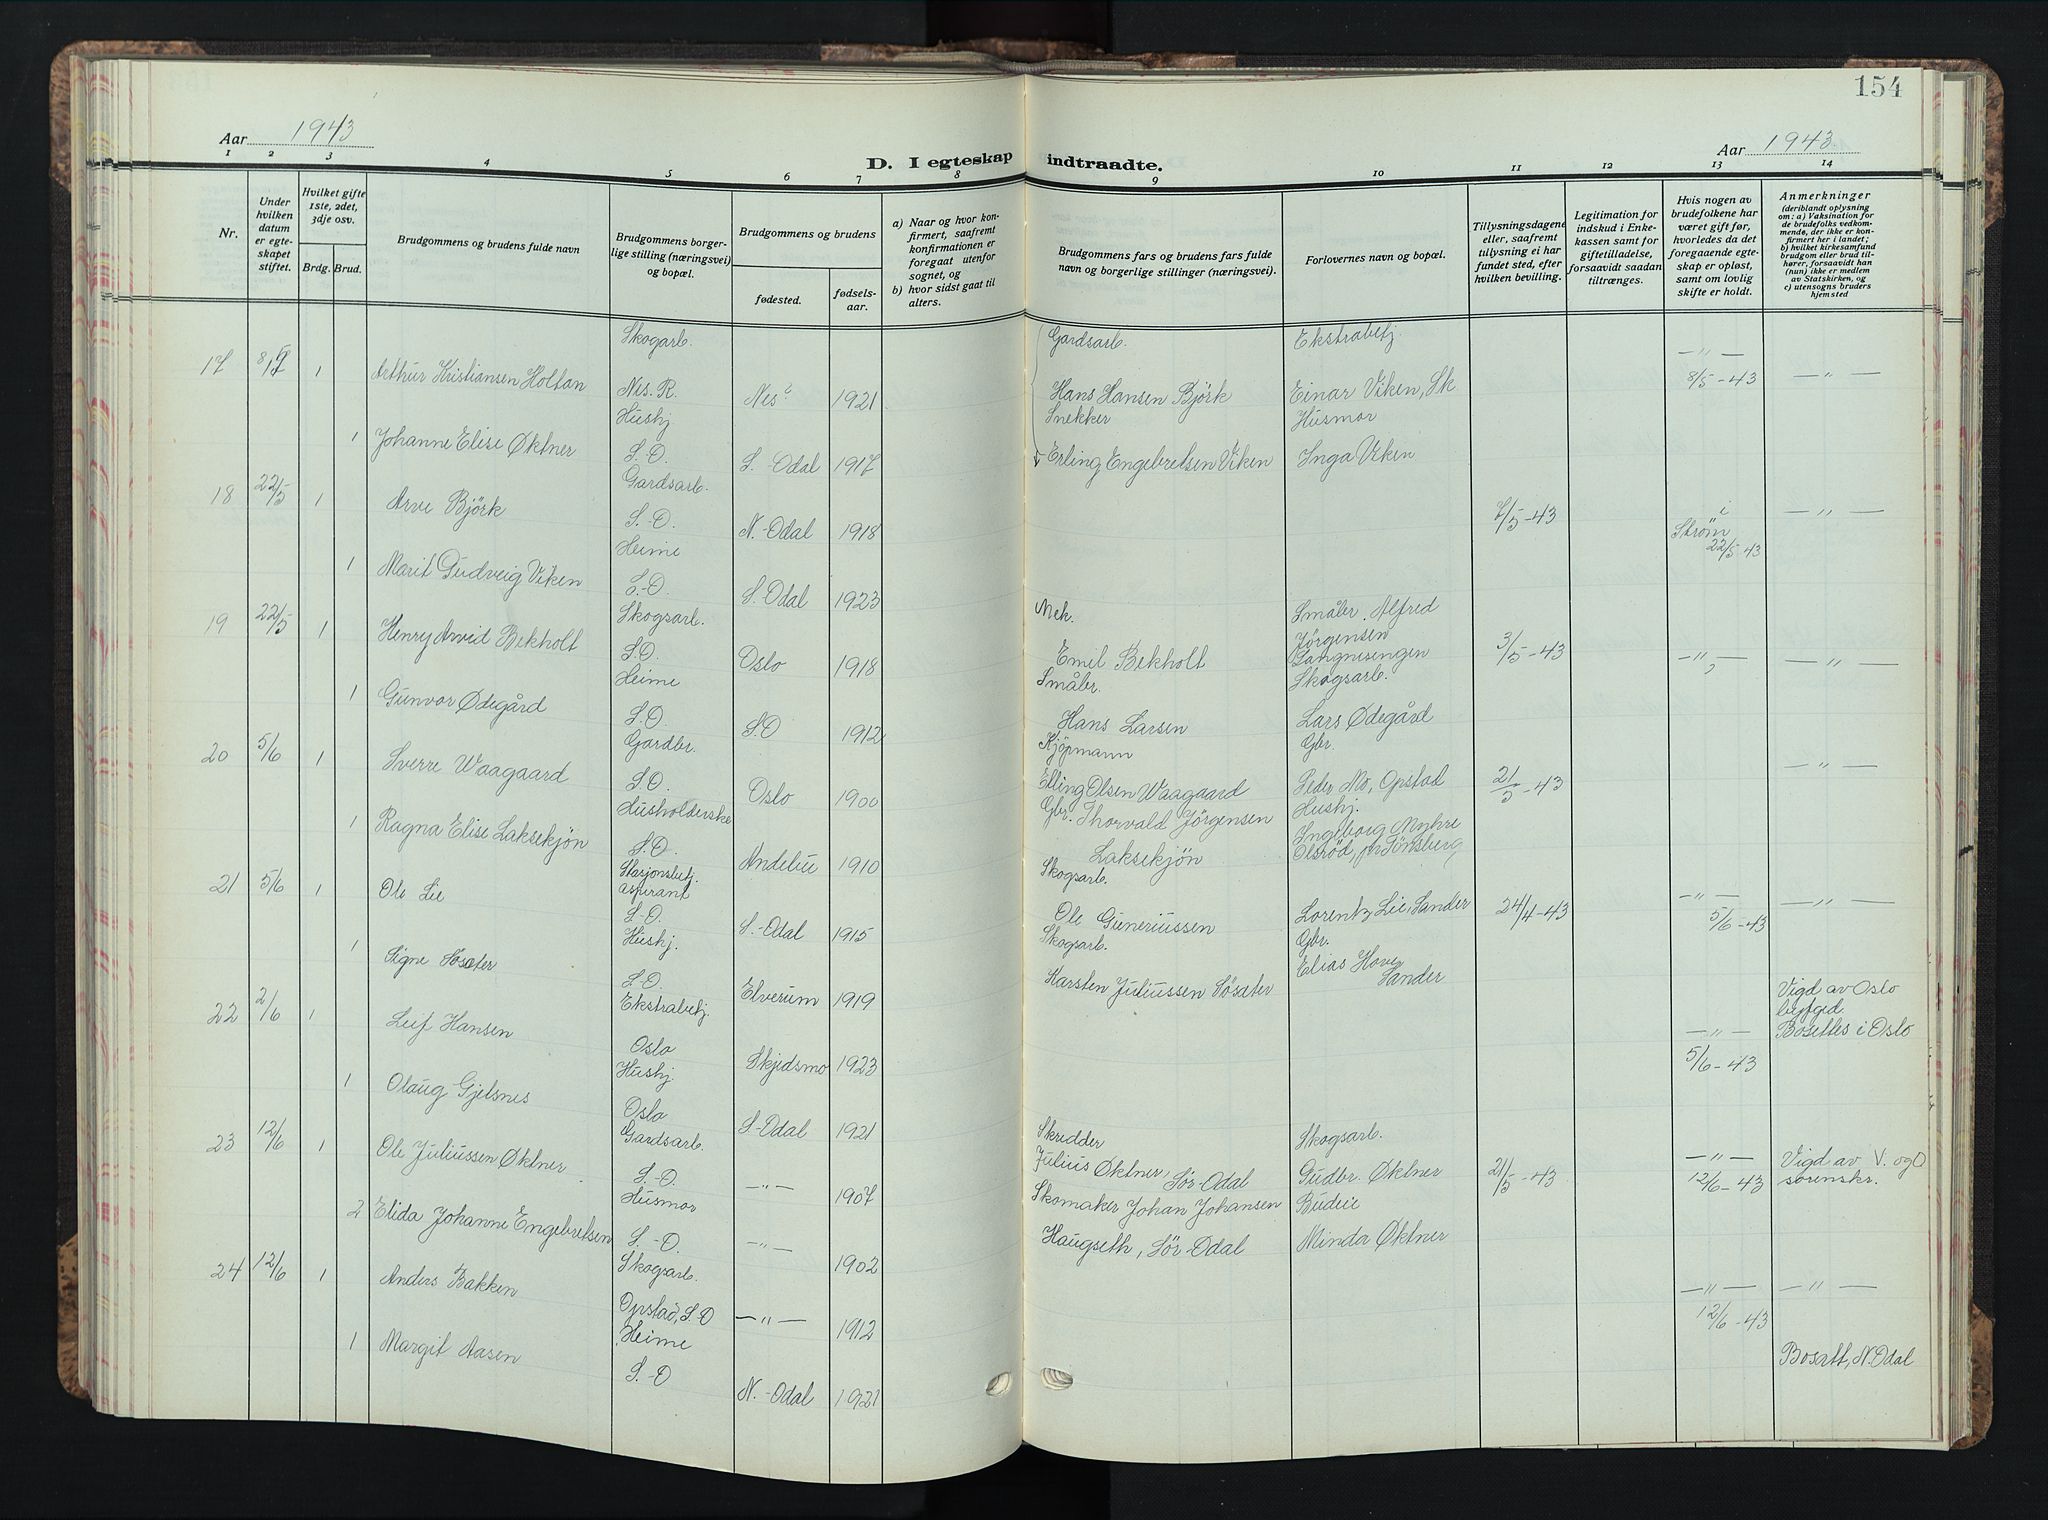 154
Aar 1943
D. I egteskap indtraadte.
Aar 1943
1 2 3 4 5 6 7 8 9 10 11 12 13 14
Nr.
Under hvilken datum er egteskapet stiftet.
Hvilket gifte 1ste, 2det, 3dje osv.
Brdg. Brud.
Brudgommens og brudens fulde navn
Brudgommens borgerlige stilling (næringsvei) og bopæl.
Brudgommens og brudens
fødested.
fødselsaar.
a) Naar og hvor konfirmert, saafremt konfirmationen er foregaat utenfor sognet, og
b) hvor sidst gaat til alters.
Brudgommens fars og brudens fars fulde navn og borgerlige stillinger (næringsvei).
Forlovernes navn og bopæl.
Tillysningsdagene eller, saafremt tillysning ei har fundet sted, efter hvilken bevilling.
Legitimation for indskud i Enkekassen samt for giftetilladelse, forsaavidt saadan tiltrænges.
Hvis nogen av brudefolkene har været gift før, hvorledes da det foregaaende egteskap er opløst, samt om lovlig skifte er holdt.
Anmerkninger
(deriblandt oplysning om: a) Vaksination for de brudefolks vedkommende, der ikke er konfirmert her i landet; b) hvilket kirkesamfund brudgom eller brud tilhører, forsaavidt han (hun) ikke er medlem av Statskirken, og c) utensogns bruders hjemsted
Skogarb. Gardsarb. Ekstrabetj.
17 8/5 1 Arthur Kristiansen Holtan — " —
8/5 - 43 — " —
Nes. R. Nes 1921 Hans Hansen Björk Einar Viken, Sk
Hushj Snekker Husmor
1 Johanne Elise Øktner
S.-O. S.-Odal 1917 Erling Engebretsen Viken Inga Viken
18 22/5 1 Arve Björk Gardsarb.
S.-O. N.-Odal 1918 7/5 - 43 i Strøm 22/5 - 43 — " —
Heime
1 Marit Gudveig Viken
S.-O. S.Odal 1923
19 22/5 1 Henry Arvid Bekholt Skogsarb. Mek. Småbr. Alfred
Jørgensen
S.O. Oslo 1918 Emil Bekholt Langnesengen 3/5 - 43 — " — — " —
Heime Småbr. Skogsarb.
1 Gunvor Ødegård
S.O. S.O 1912 Hans Larsen Lars Ødegård
20 5/6 1 Sverre Waagaard Gardbr. Kjöpmann Gbr.
S.O. Oslo 1900 Elling Olsen Waagaard Peder Mo, Opstad 21/5 - 43 — " —
Husholderske Gbr. Thorvald Jörgensen Hushj.
1 Ragna Elise Laksekjøn Ingeborg Myhre
S.O. Andebu 1910 Laksekjön Olsrød, pr Tönsberg
21 5/6 1 Ole Lie Stasjonsbetj. aspirant Skogsarb.
S.-O. S.-Odal 1915 Ole Guneriussen Lorentz Lie, Sander 24/4 - 43 — " — 5/6 - 43 — " —
Hushj. Skogsarb. Gbr.
1 Signe Søsæter
S.O. Elverum 1919 Karsten Juliussen Søsæter Elias Hove Sander
22 2/6 1 Leif Hansen Ekstrabetj. Vigd av Oslo
byfgd.
Oslo Skjedsmo 1923 — " — 5/6 - 43 Bosettes i Oslo
Hushj.
1 Olaug Gjelsnes
Oslo S.-Odal 1921
23 12/6 1 Ole Juliussen Øktner Gardsarb. Skredder Skogsarb.
S.-O. — " — 1907 Julius Øktner, Sør-Odal Gudbr. Øktner 21/5 - 43 — " — 12/6 - 43 Vigd av V. og O
sørenskr.
Husmor Skomaker Johan Johansen Budeie
2 Elida Johanne Engebretsen
S.-O. — " — 1902 Haugseth, Sør-Odal Minda Øktner
24 12/6 1 Anders Bakken Skogsarb.
Opstad, S.O — " — 1912 — " — 12/6 - 43 — " —
Heime
1 Margit Aasen
S.-O N.-Odal 1921 Bosatt, N.Odal